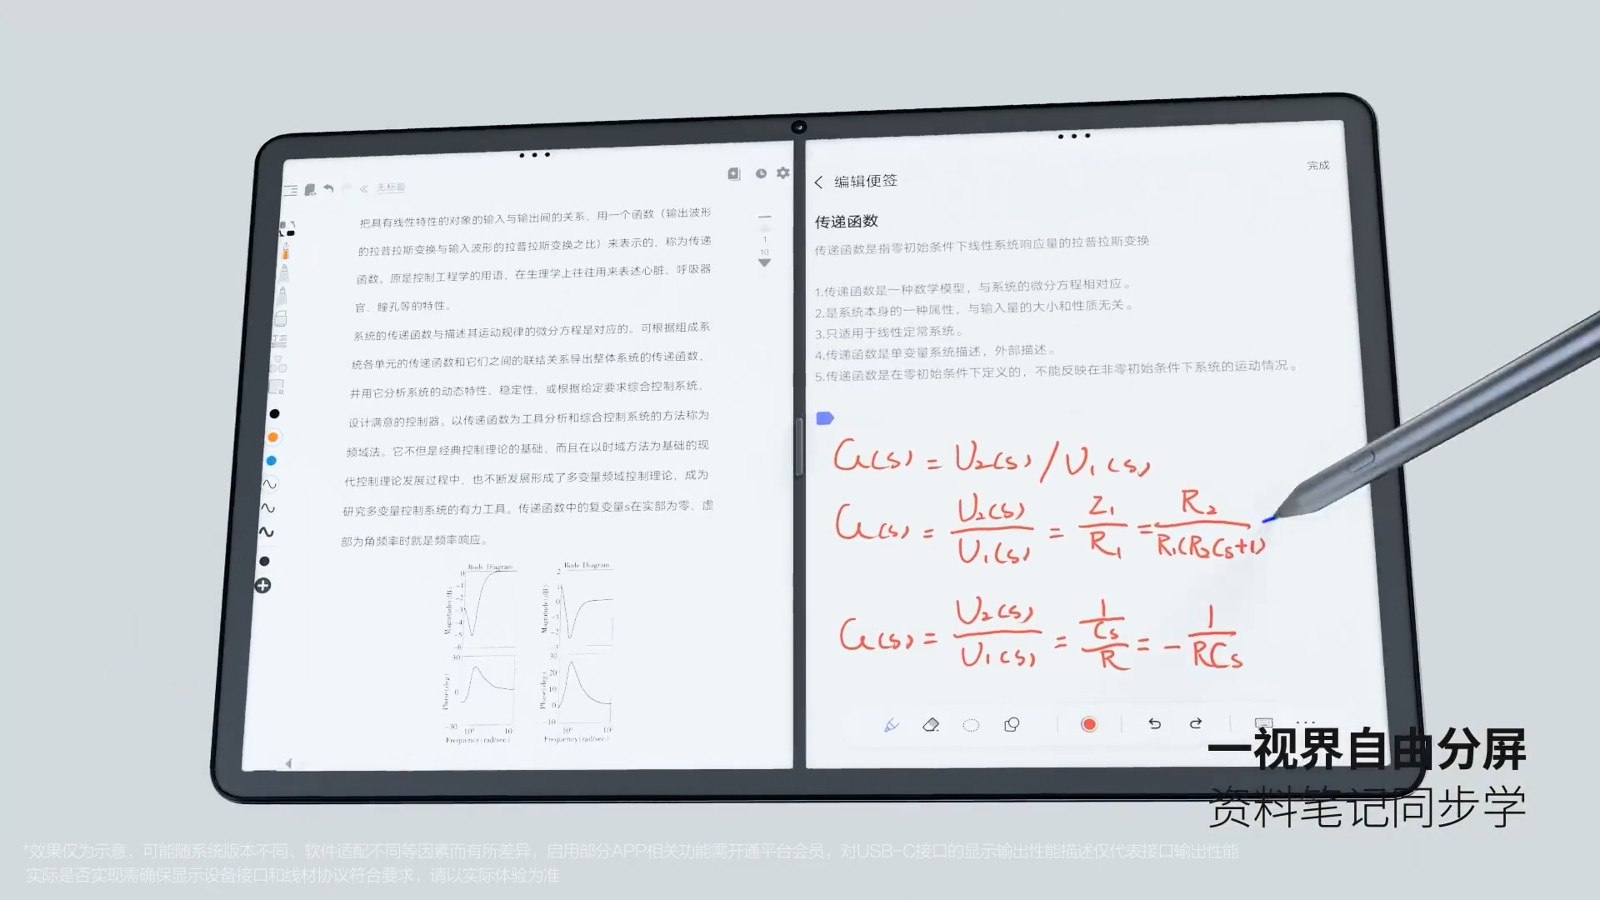 无标题
把具有线性特性的对象的输入与输出间的关系，用一个函数（输出波形
的拉普拉斯变换与输入波形的拉普拉斯变换之比）来表示的，称为传递
函数。原是控制工程学的用语，在生理学上往往用来表述心脏、呼吸器
官、瞳孔等的特性。
系统的传递函数与描述其运动规律的微分方程是对应的。可根据组成系
统各单元的传递函数和它们之间的联结关系导出整体系统的传递函数，
并用它分析系统的动态特性、稳定性，或根据给定要求综合控制系统，
设计满意的控制器。以传递函数为工具分析和综合控制系统的方法称为
频域法。它不但是经典控制理论的基础，而且在以时域方法为基础的现
代控制理论发展过程中，也不断发展形成了多变量频域控制理论，成为
研究多变量控制系统的有力工具。传递函数中的复变量s在实部为零、虚
部为角频率时就是频率响应。
1
10
Bode Diagram
Bode Diagram
Magnitude(dB)
0
-1
-2
-3
-4
-5
-6
Magnitude(dB)
2
1
0
Phase(deg)
30
0
-30
Phase(deg)
30
20
10
0
-10
Frequency(rad/sec)
Frequency(rad/sec)
完成
编辑便签
传递函数
传递函数是指零初始条件下线性系统响应量的拉普拉斯变换
1.传递函数是一种数学模型，与系统的微分方程相对应。
2.是系统本身的一种属性，与输入量的大小和性质无关。
3.只适用于线性定常系统。
4.传递函数是单变量系统描述，外部描述。
5.传递函数是在零初始条件下定义的，不能反映在非零初始条件下系统的运动情况。
G(s) = U₂(s) / U₁(s)
G(s) = U₂(s) / U₁(s) = Z₁ / R₁ = R₂ / R₁(R₂Cs+1)
G(s) = U₂(s) / U₁(s) = 1/Cs / R = - 1 / RCs
一视界自由分屏
资料笔记同步学
*效果仅为示意，可能随系统版本不同、软件适配不同等因素而有所差异，启用部分APP相关功能需开通平台会员，对USB-C接口的显示输出性能描述仅代表接口输出性能
实际是否实现需确保显示设备接口和线材协议符合要求，请以实际体验为准